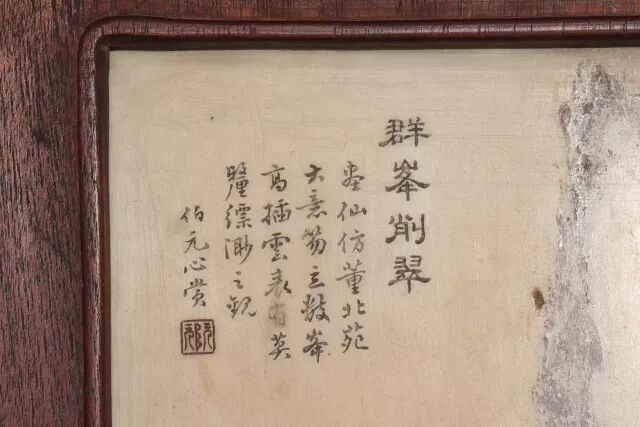 群峯削翠
仙仿董北苑
大意笏立數峯
高插雲表有莫
釐縹渺之觀
伯元心賞